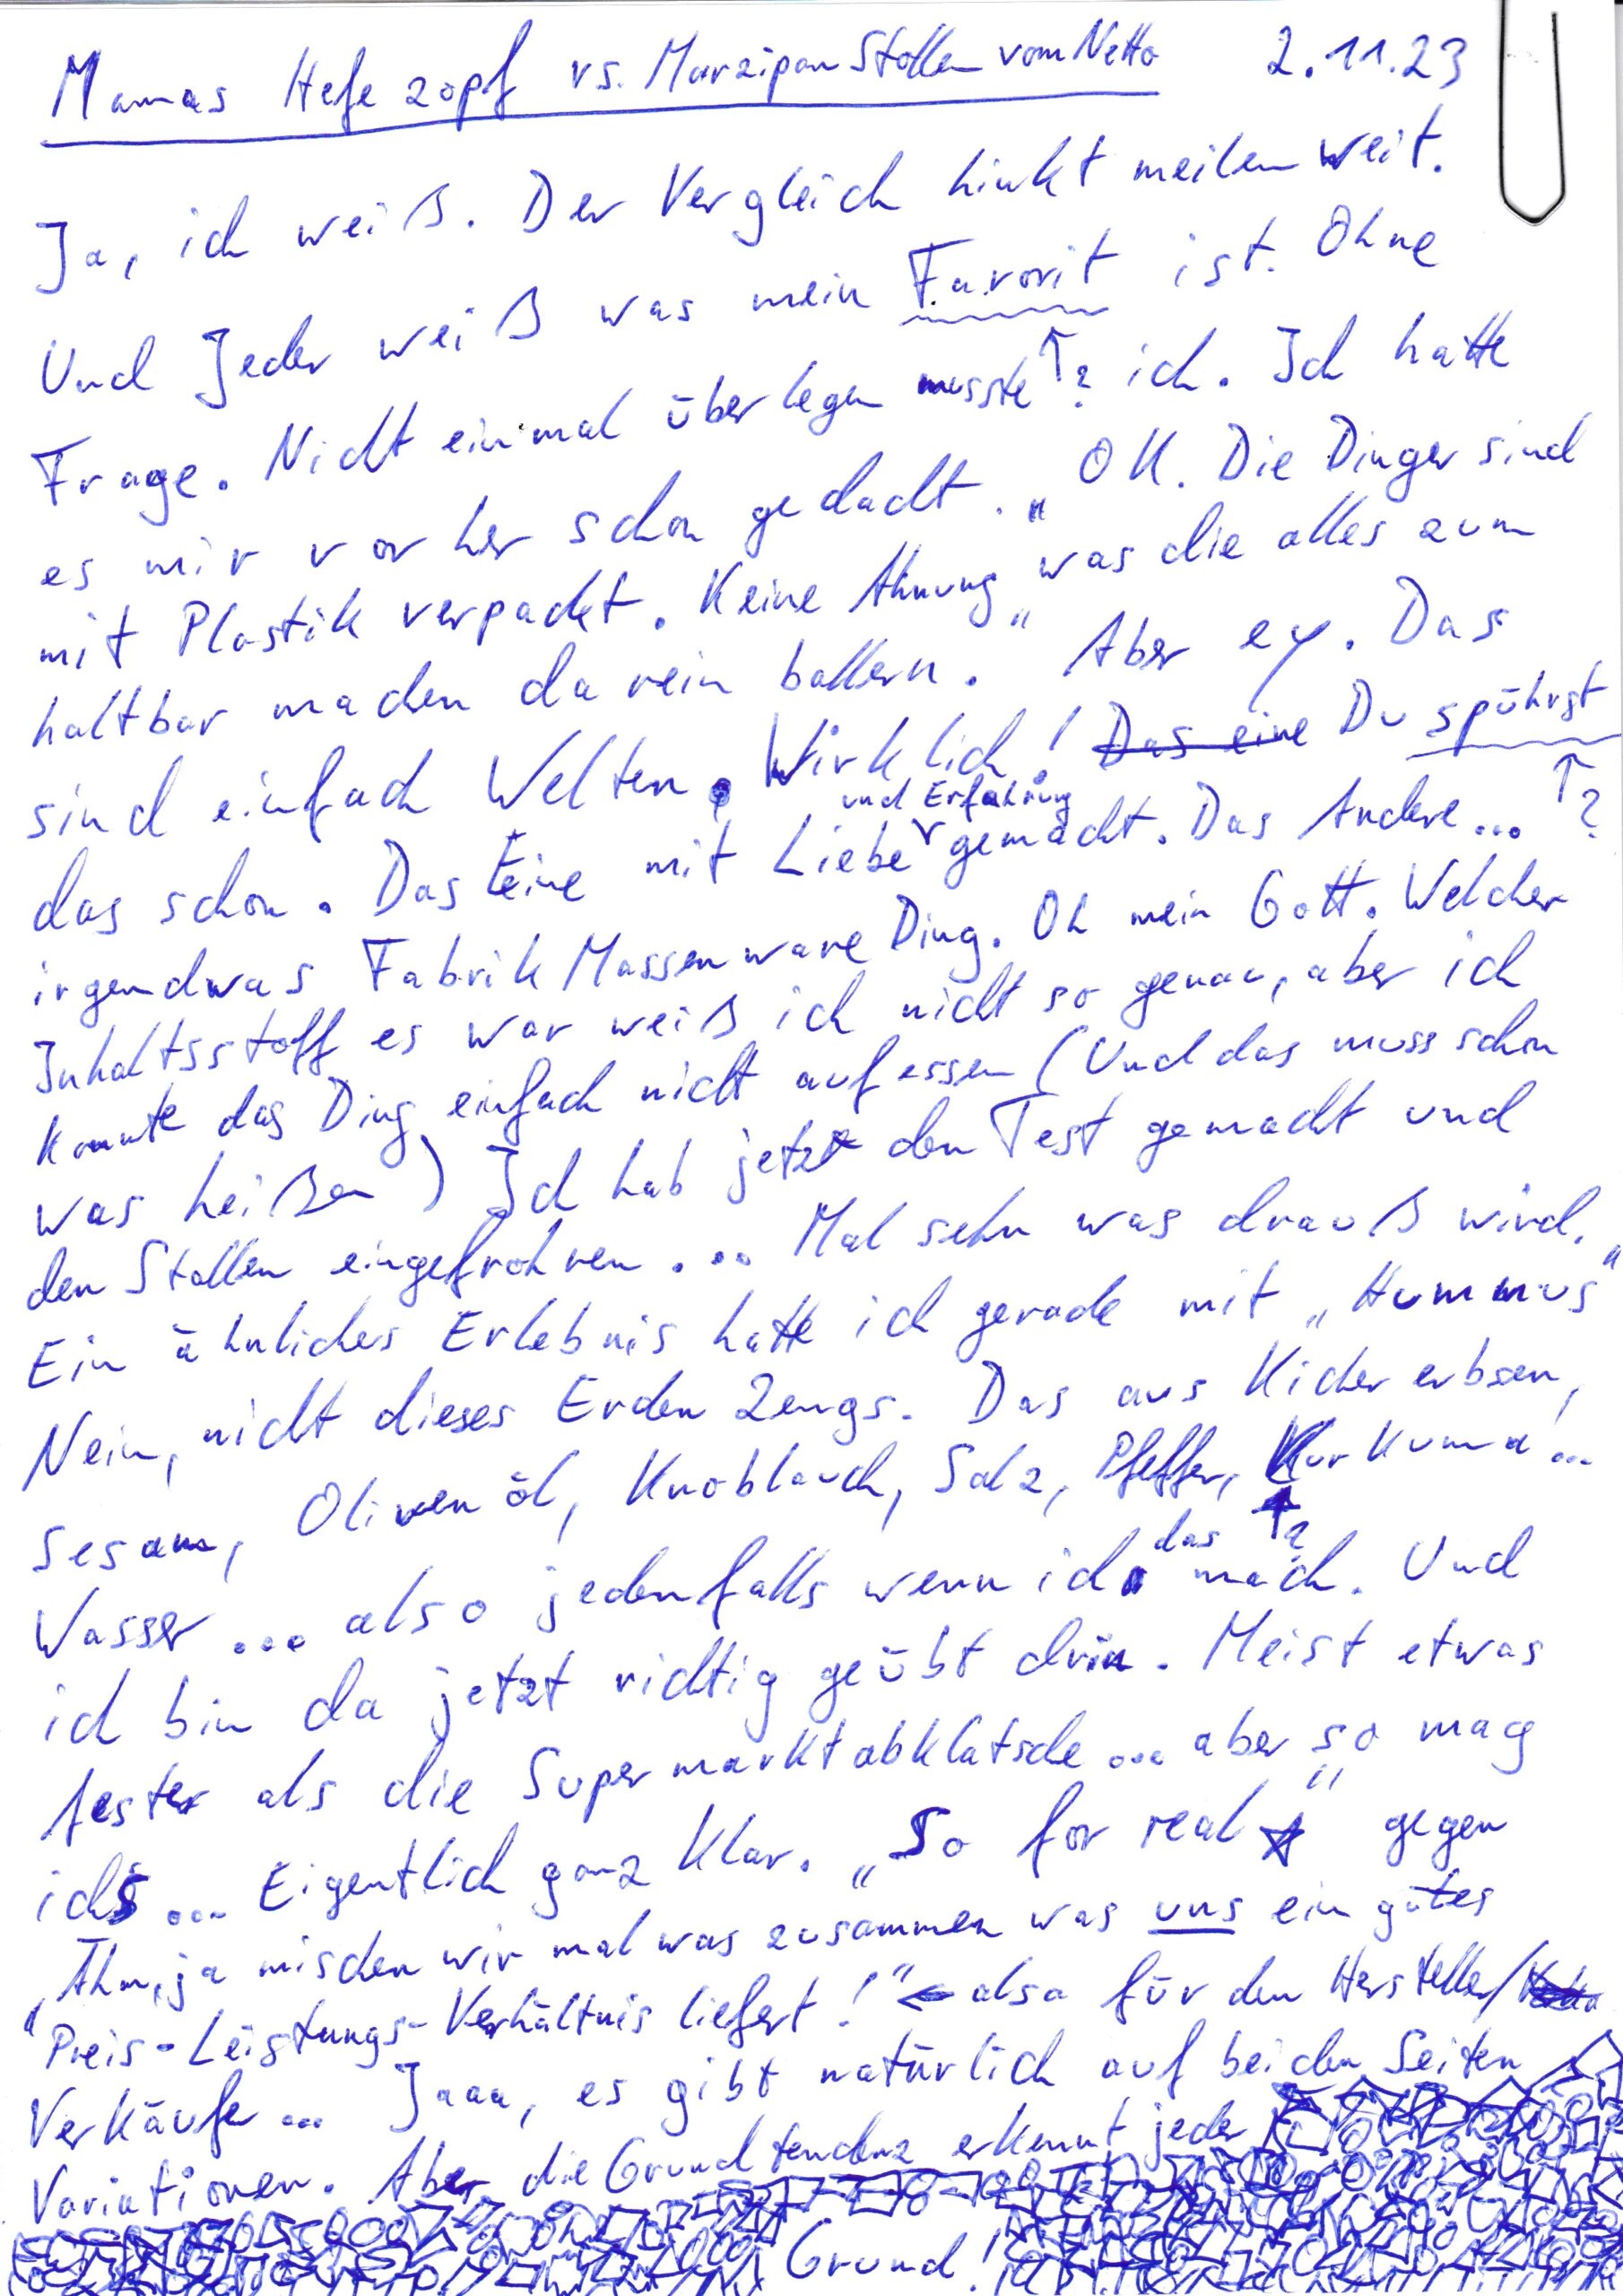 Mamas Hefezopf vs. Marzipan Stollen vom Netto 2.11.23
Ja, ich weiß. Der Vergleich hinkt meilenweit.
Und Jeder weiß was mein Favorit ist. Ohne
Frage. Nicht einmal überlegen musste ↑? ich. Ich hatte
es mir vorher schon gedacht. „OK. Die Dinger sind
mit Plastik verpackt. Keine Ahnung was die alles zum
haltbar machen da rein ballern." Aber ey. Das
sind einfach Welten. Wirklich! Das eine Du spührst
das schon. Das Eine mit Liebe und Erfahrung gemacht. Das Andere... ↑?
irgendwas Fabrik Massenware Ding. Oh mein Gott. Welcher
Inhaltsstoff es war weiß ich nicht so genau, aber ich
konnte das Ding einfach nicht aufessen (Und das muss schon
was heißen) Ich hab jetzt den Test gemacht und
den Stollen eingefrohren... Mal sehn was drauß wird.
Ein ähnliches Erlebnis hatte ich gerade mit „Hummus"
Nein, nicht dieses Erden Zeugs. Das aus Kichererbsen,
Sesam, Olivenöl, Knoblauch, Salz, Pfeffer, Kurkuma...
Wasser ... also jedenfalls wenn ich das ↑? mach. Und
ich bin da jetzt richtig geübt drin. Meist etwas
fester als die Supermarktabklatsche... aber so mag
ichs ... Eigentlich ganz Klar. „So for real" gegen
„Ähm, ja mischen wir mal was zusammen was uns ein gutes
Preis-Leistungs-Verhältnis liefert!" ← also für den Hersteller/
Verkäufer ... Jaaa, es gibt natürlich auf beiden Seiten
Variationen. Aber die Grundtendenz erkennt jeder
Grund!